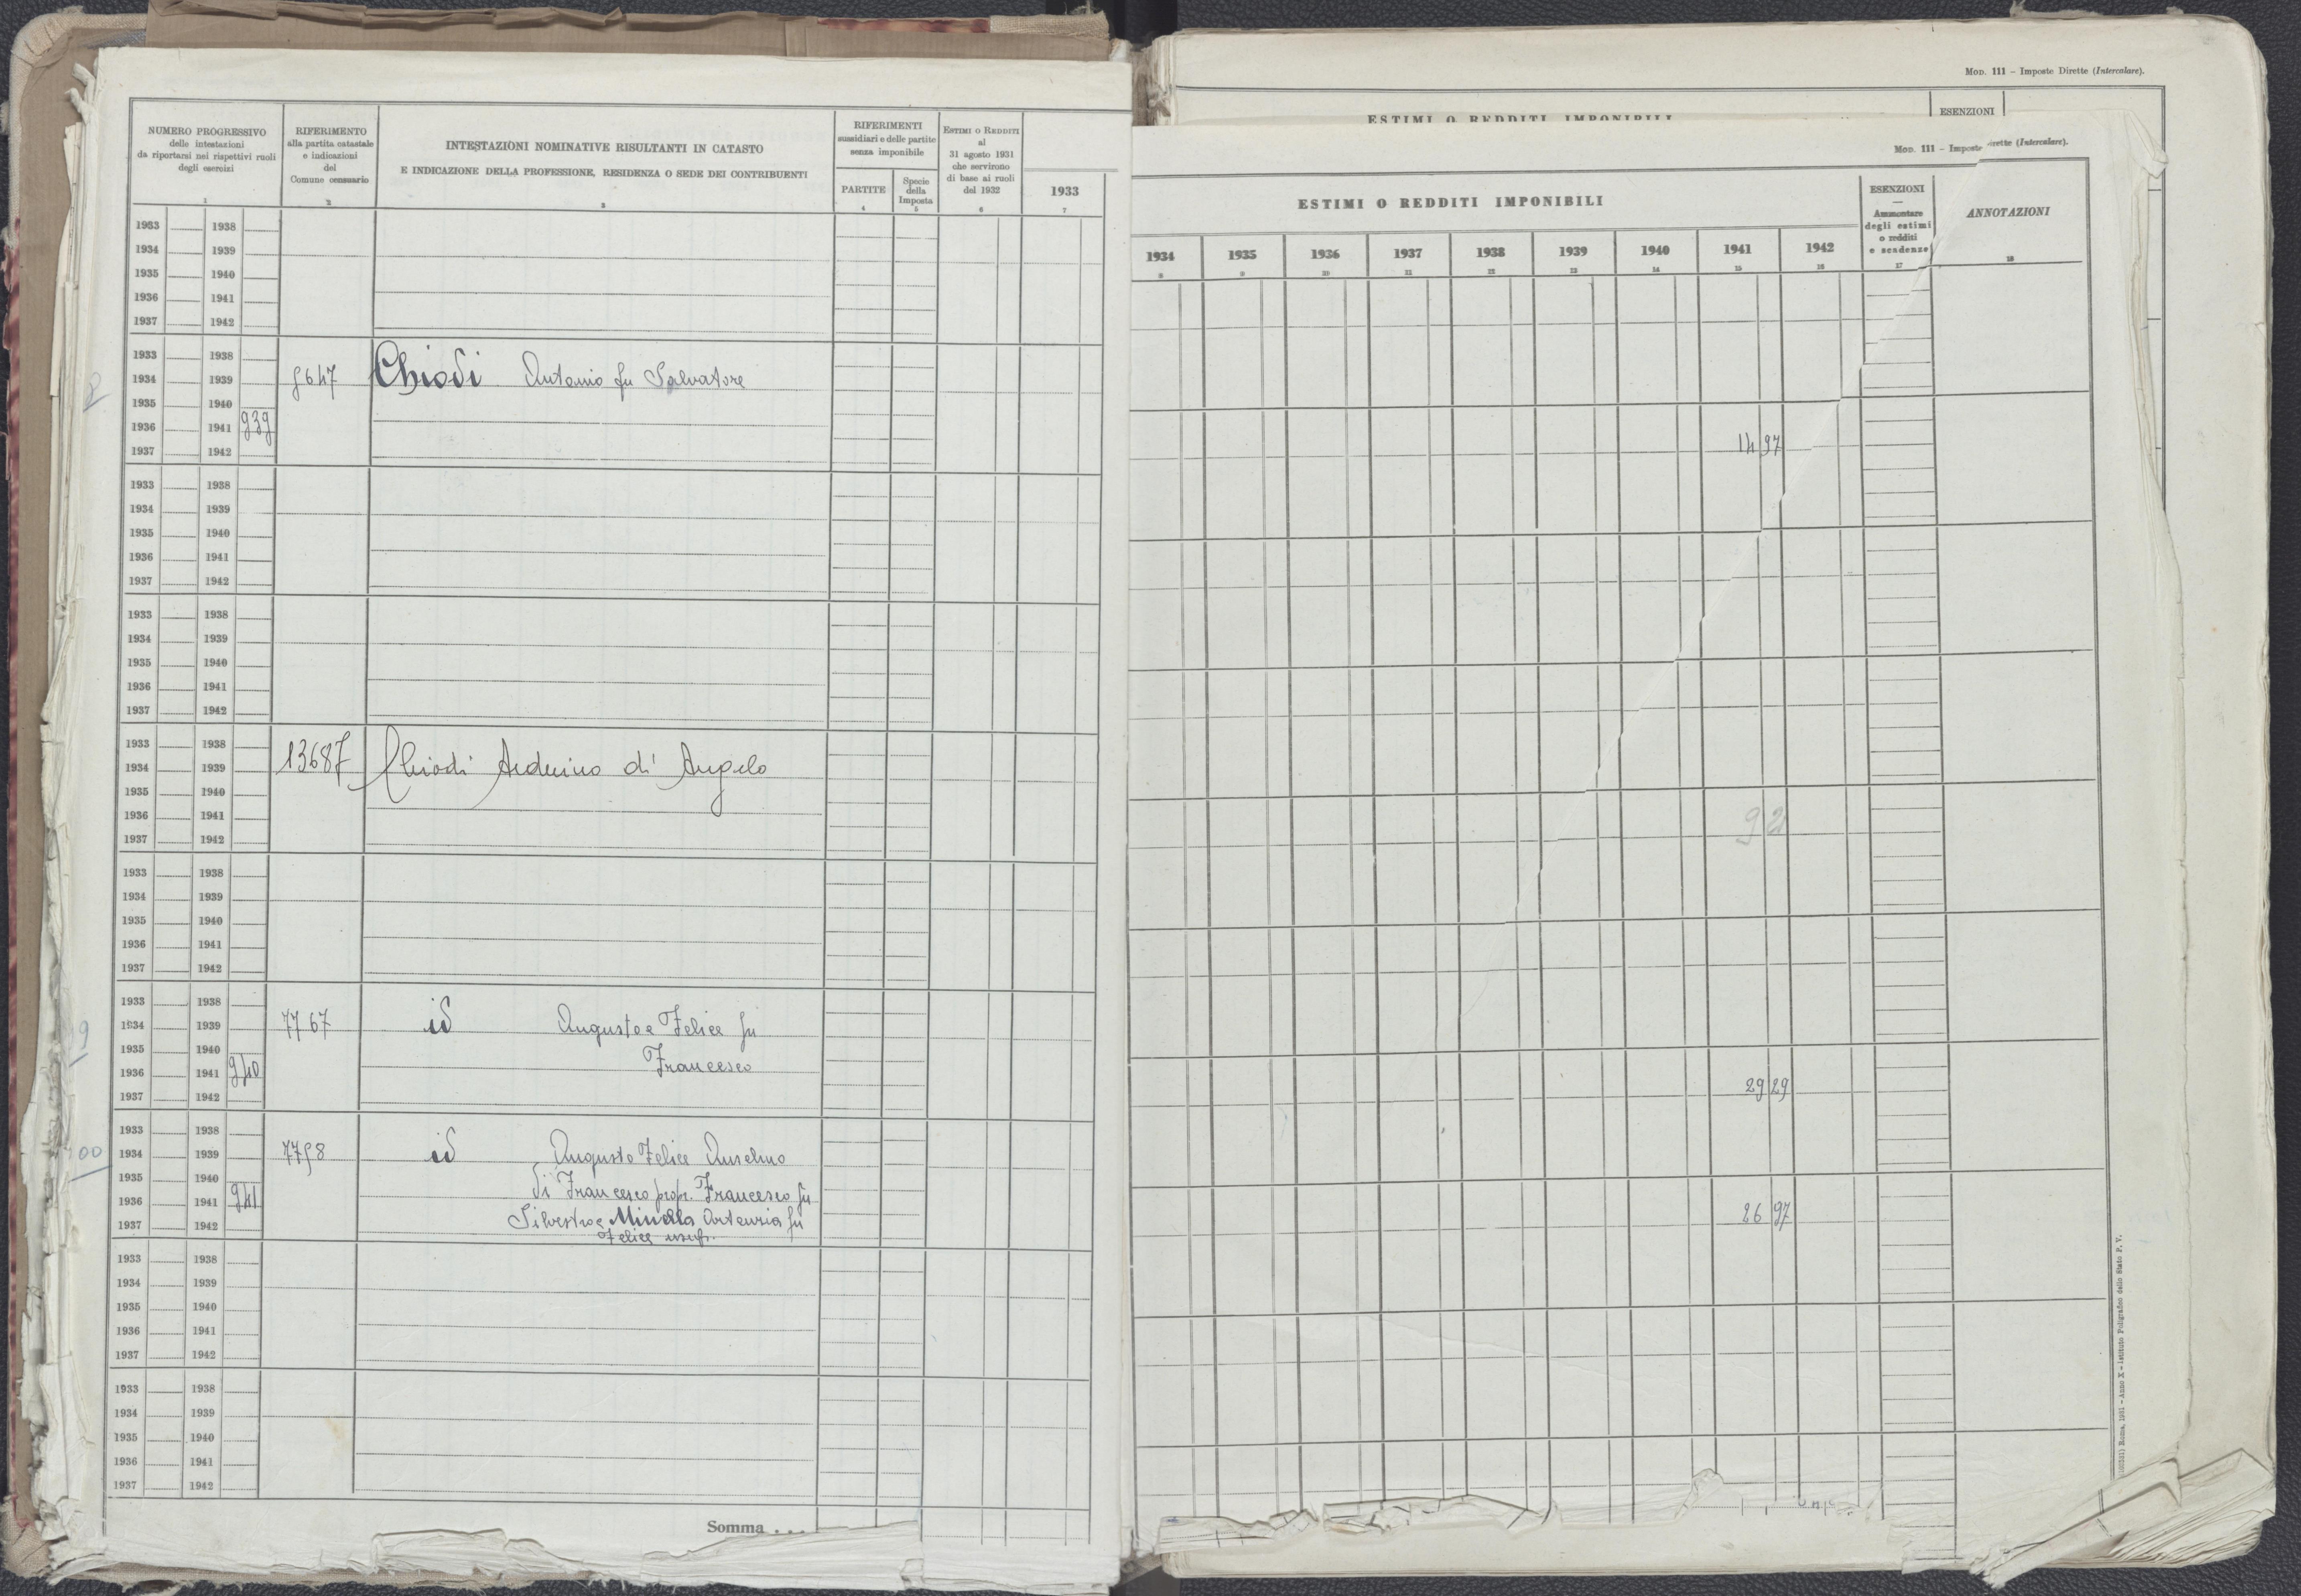 Mod. 111 – Imposte Dirette (Intercalare).
ESTIMI O REDDITI IMPONIBILI
ESENZIONI
NUMERO PROGRESSIVO
delle intestazioni
da riportarsi nei rispettivi ruoli
degli esercizi
1
RIFERIMENTO
alla partita catastale
e indicazioni
del
Comune censuario
2
INTESTAZIONI NOMINATIVE RISULTANTI IN CATASTO
E INDICAZIONE DELLA PROFESSIONE, RESIDENZA O SEDE DEI CONTRIBUENTI
3
RIFERIMENTI
sussidiari e delle partite
senza imponibile
PARTITE
4
Specie
della
Imposta
5
Estimi o Redditi
al
31 agosto 1931
che servirono
di base ai ruoli
del 1932
6
1933
7
Mod. 111 – Imposte Dirette (Intercalare).
ESTIMI O REDDITI IMPONIBILI
1934 1935 1936 1937 1938 1939 1940 1941 1942
8 9 10 11 12 13 14 15 16
ESENZIONI
—
Ammontare
degli estimi
o redditi
e scadenze
17
ANNOTAZIONI
18
1933 1938
1934 1939
1935 1940
1936 1941
1937 1942
1933 1938
1934 1939 8647 Chiodi Antonio fu Salvatore
1935 1940
1936 1941 939 14 97
1937 1942
1933 1938
1934 1939
1935 1940
1936 1941
1937 1942
1933 1938
1934 1939
1935 1940
1936 1941
1937 1942
1933 1938
1934 1939 13687 Chiodi Arduino di Angelo
1935 1940
1936 1941 92
1937 1942
1933 1938
1934 1939
1935 1940
1936 1941
1937 1942
1933 1938
1934 1939 7767 id Augusto e Felice fu
1935 1940 Francesco
1936 1941 940 29 29
1937 1942
1933 1938
1934 1939 7798 id Augusto Felice Anselmo
1935 1940 di Francesco propr. Francesco fu
1936 1941 941 Silvestro e Minella Ortenzia fu 26 97
1937 1942 Felice usuf.
1933 1938
1934 1939
1935 1940
1936 1941
1937 1942
1933 1938
1934 1939
1935 1940
1936 1941
1937 1942
Somma . . .
Roma, 1931 – Anno X – Istituto Poligrafico dello Stato P. V.